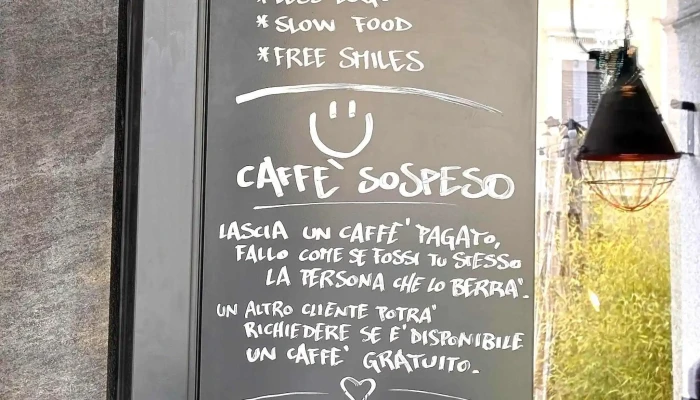 * SLOW FOOD
* FREE SMILES
CAFFE` SOSPESO
LASCIA UN CAFFE' PAGATO,
FALLO COME SE FOSSI TU STESSO
LA PERSONA CHE LO BERRA'.
UN ALTRO CLIENTE POTRA'
RICHIEDERE SE E' DISPONIBILE
UN CAFFE' GRATUITO.